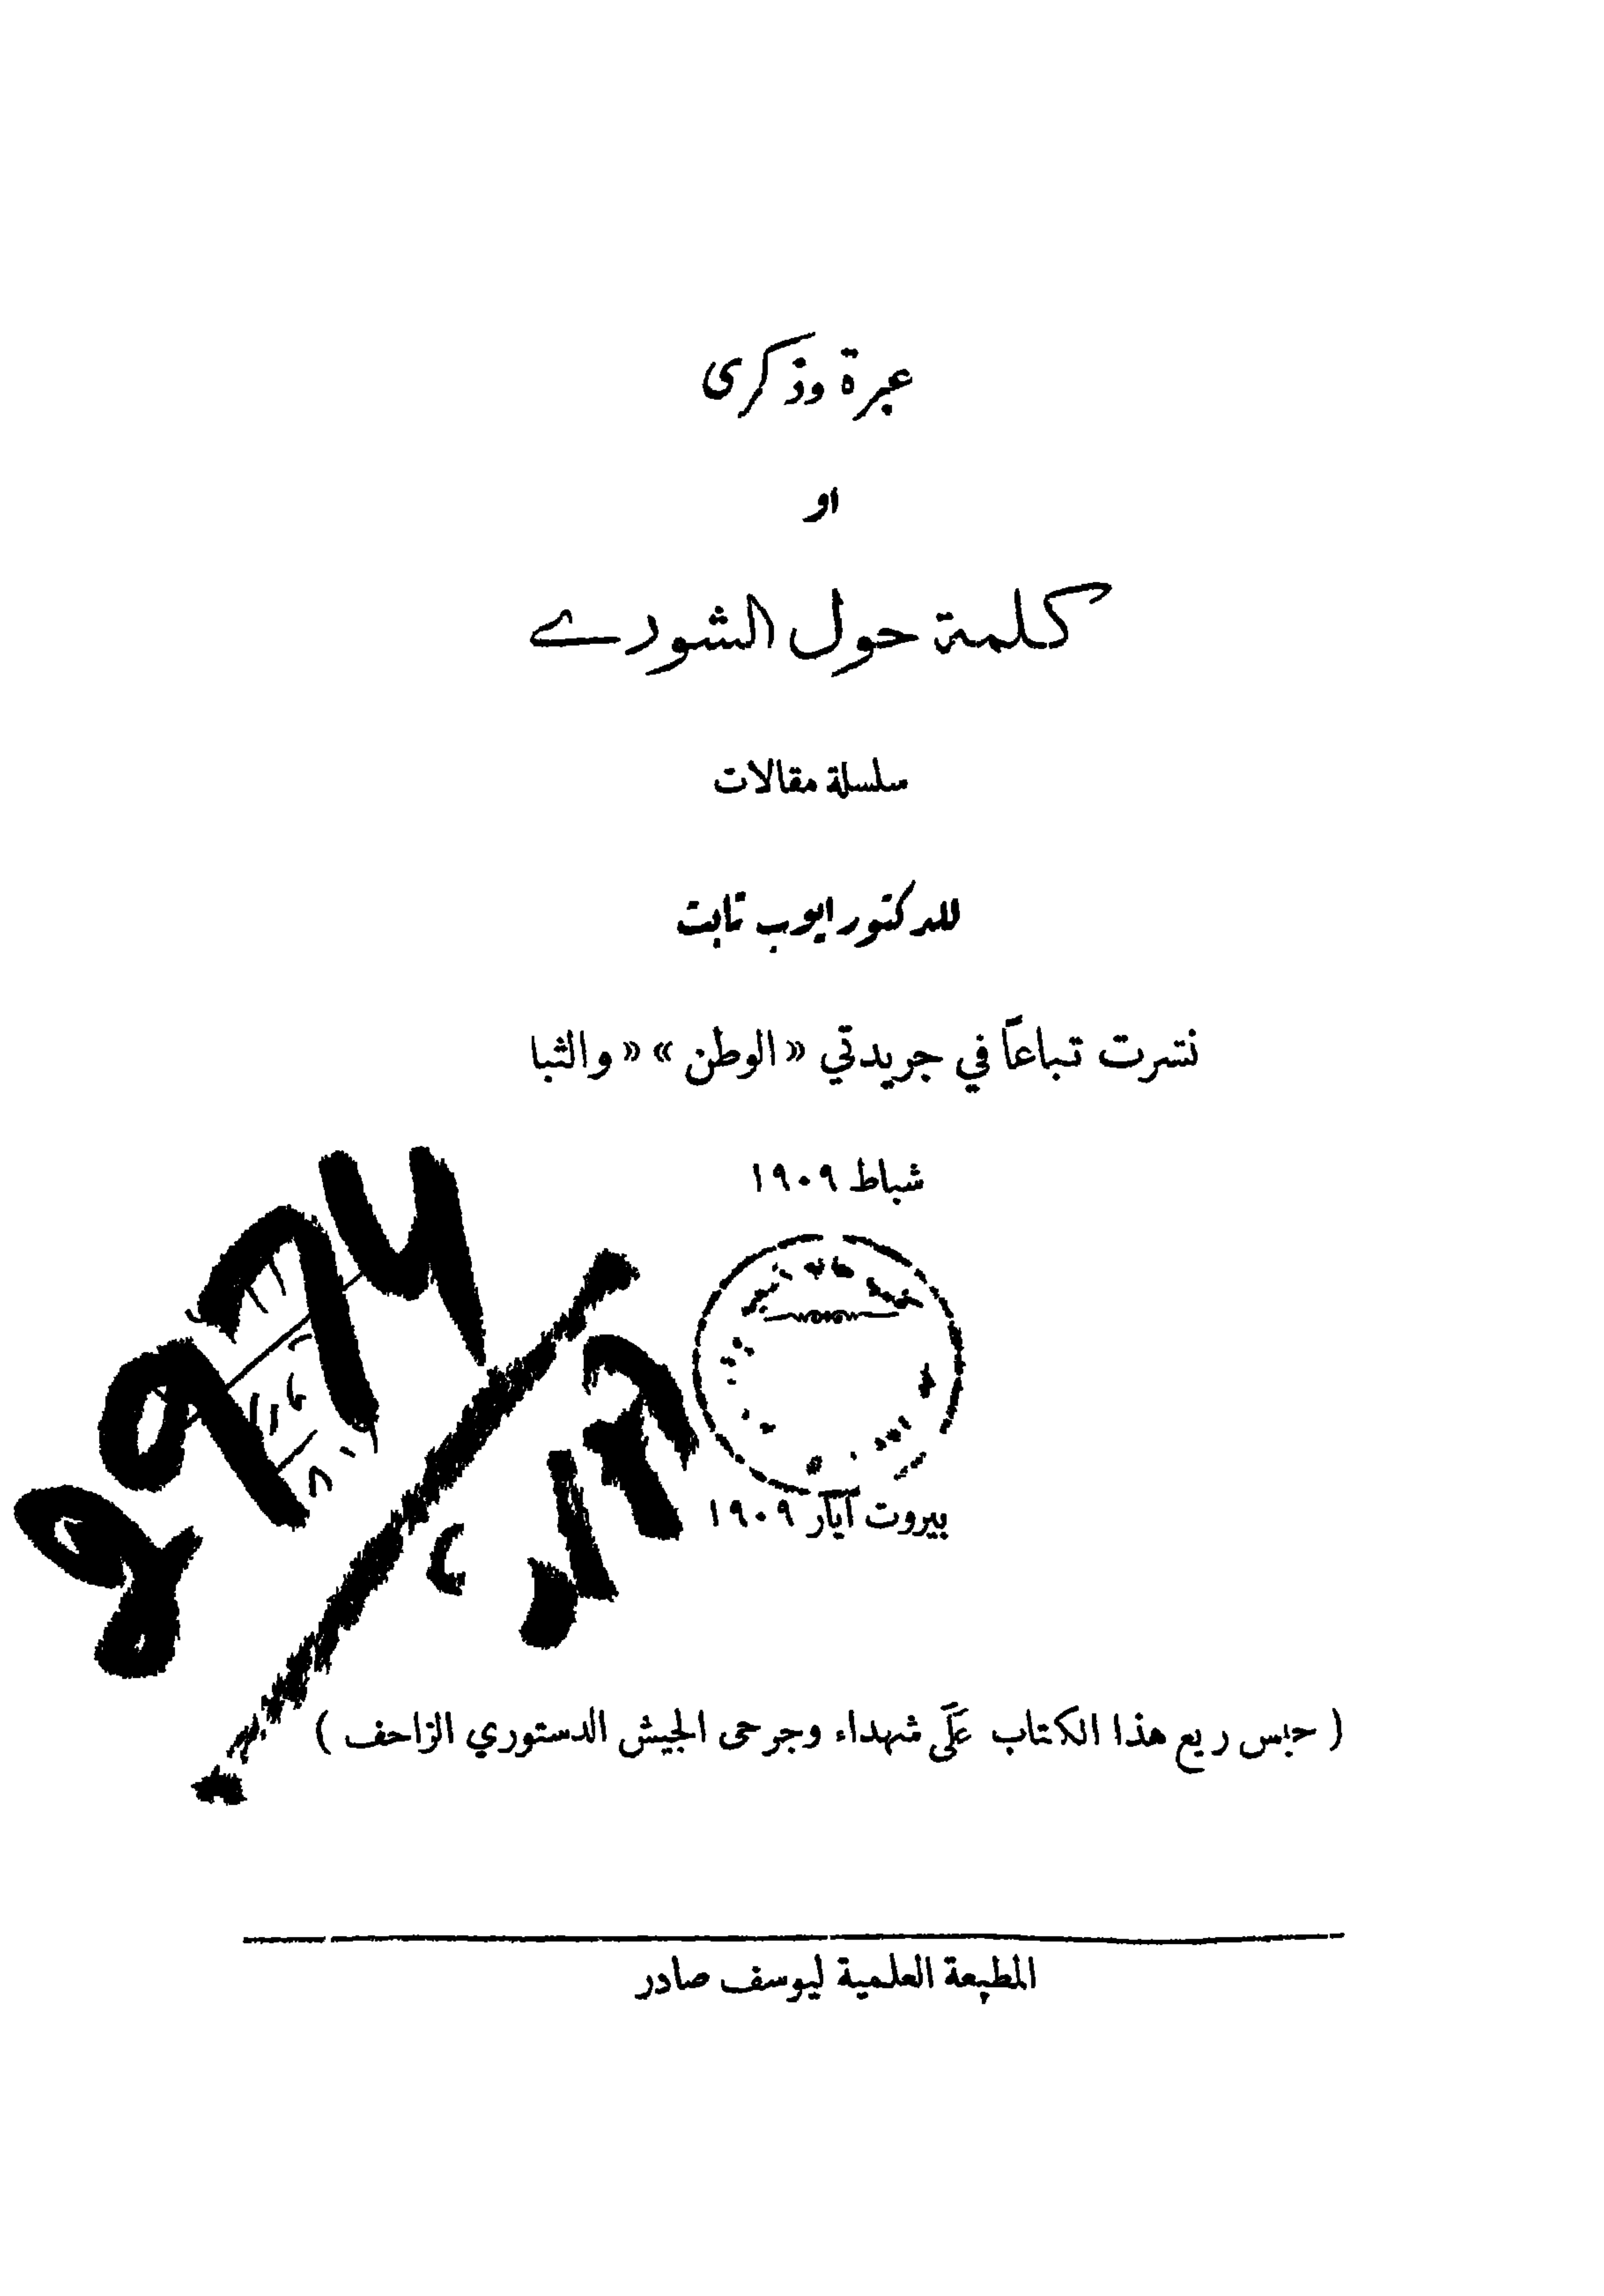 عبرة وذكرى
او
كلمة حول الشورے
سلسلة مقالات
للدكتور ايوب تابت
نشرت تباعاً في جريدتي «الوطن» «والثبا
شباط ١٩٠٩
بيروت آيار ١٩٠٩
( حبس ريع هذا الكتاب عَلَى شهداء وجرحى الجيش الدستوري الزاحف )
المطبعة العلمية ليوسف صادر